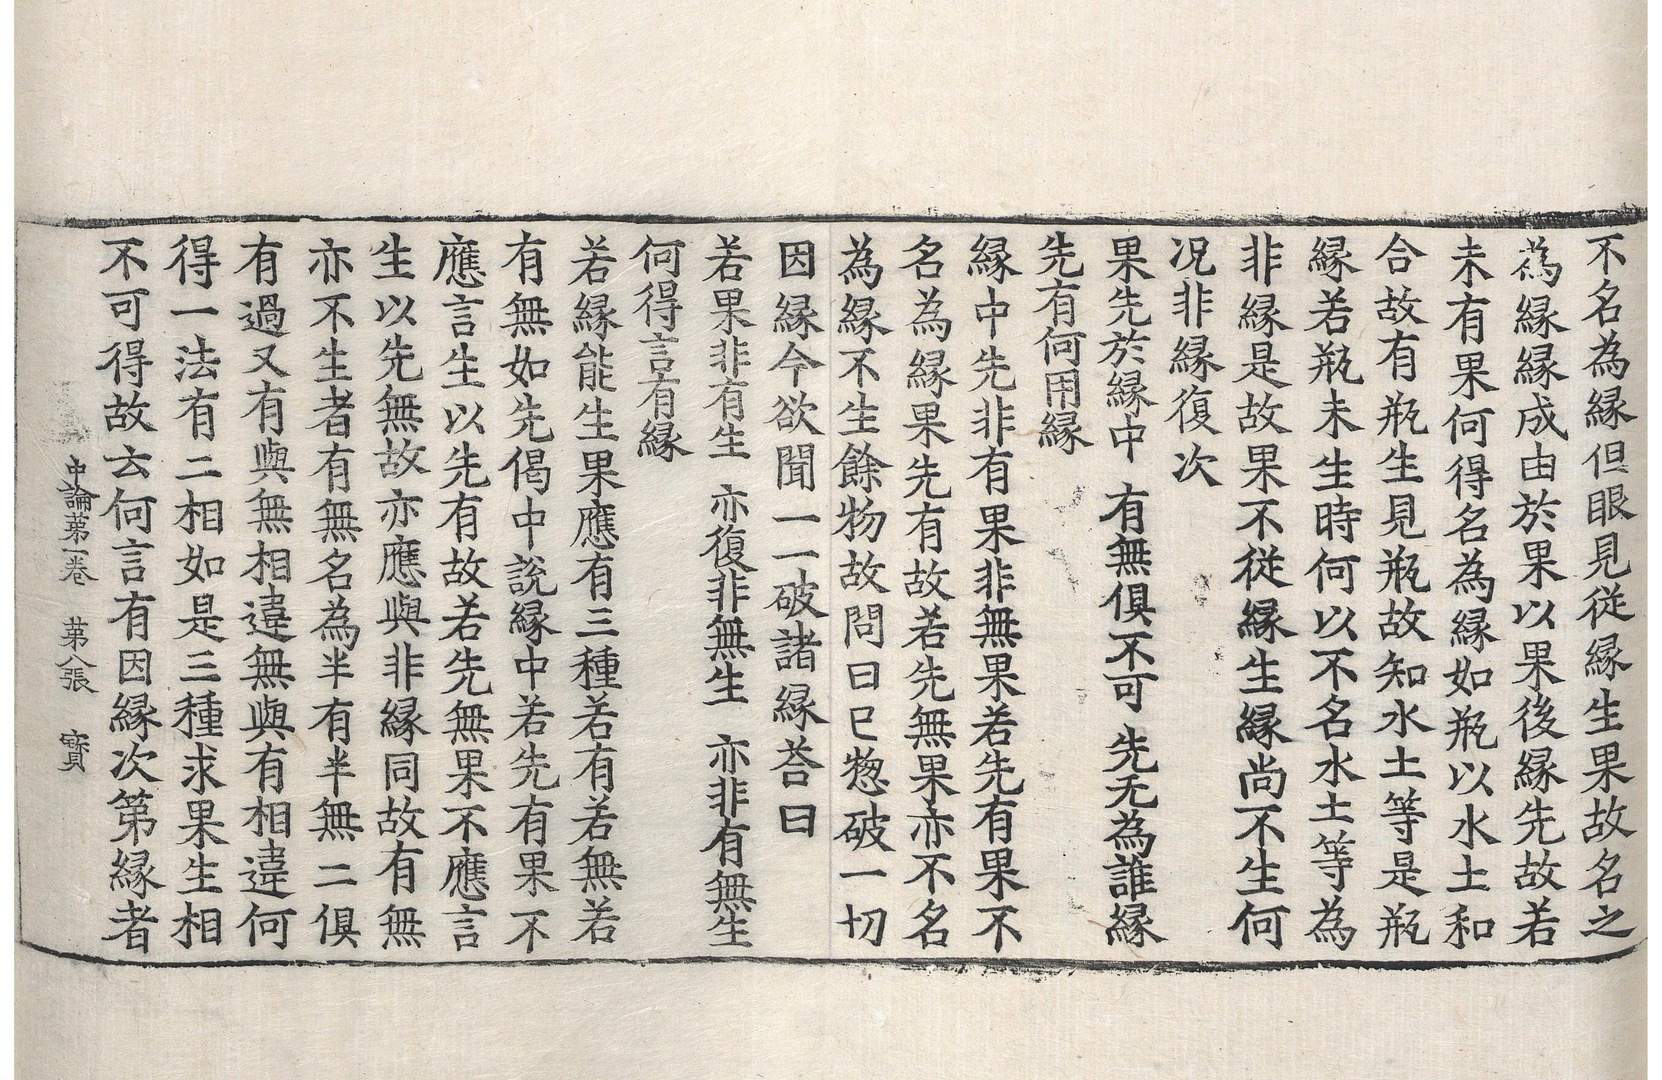 不名為縁但眼見從縁生果故名之
為縁縁成由於果以果後縁先故若
未有果何得名為縁如瓶以水土和
合故有瓶生見瓶故知水土等是瓶
縁若瓶未生時何以不名水土等為
非縁是故果不從縁生縁尚不生何
况非縁復次
果先於縁中　有無俱不可　先无為誰縁
先有何用縁
縁中先非有果非無果若先有果不
名為縁果先有故若先無果亦不名
為縁不生餘物故問曰已惣破一切
因縁今欲聞一一破諸縁荅曰
若果非有生　亦復非無生　亦非有無生
何得言有縁
若縁能生果應有三種若有若無若
有無如先偈中說縁中若先有果不
應言生以先有故若先無果不應言
生以先無故亦應與非縁同故有無
亦不生者有無名為半有半無二俱
有過又有與無相違無與有相違何
得一法有二相如是三種求果生相
不可得故去何言有因縁次第縁者
中論第一卷　苐八張　寳